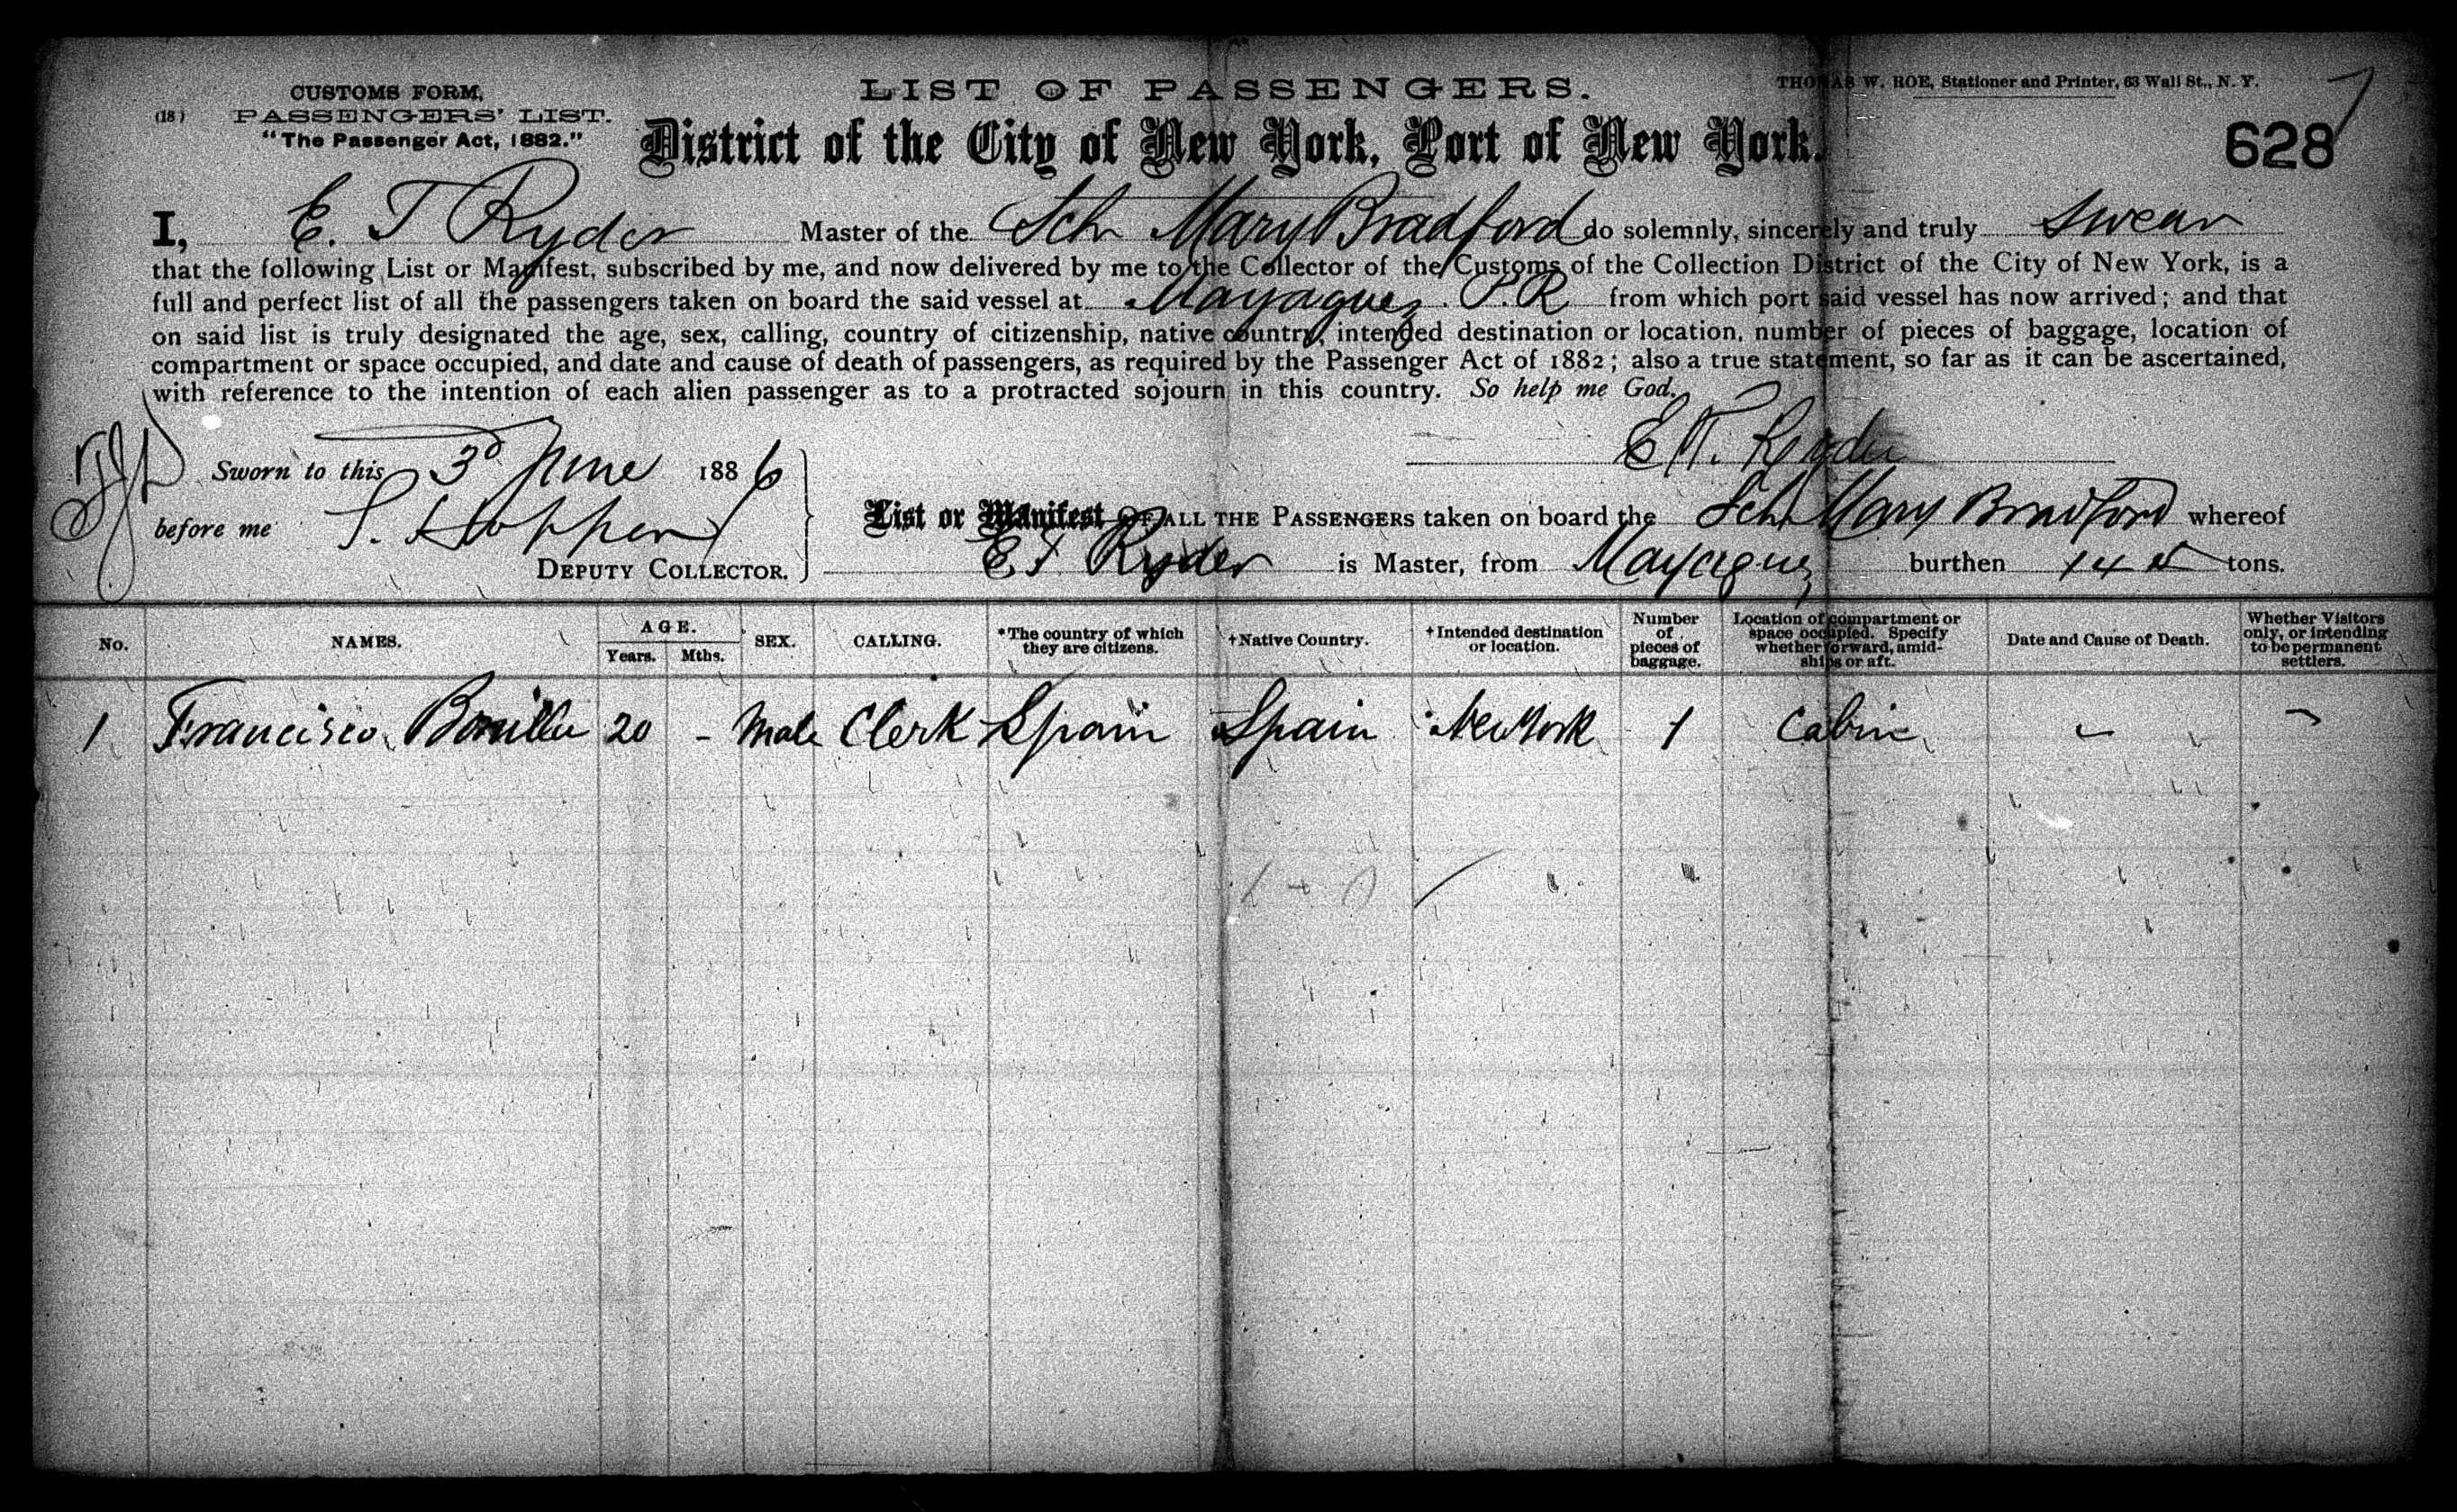 CUSTOMS FORM,
(18) PASSENGERS' LIST.
"The Passenger Act, 1882."
LIST OF PASSENGERS.
THOMAS W. ROE, Stationer and Printer, 63 Wall St., N. Y.
District of the City of New York, Port of New York.
628
I, E. T Ryder Master of the Sch Mary Bradford do solemnly, sincerely and truly swear
that the following List or Manifest, subscribed by me, and now delivered by me to the Collector of the Customs of the Collection District of the City of New York, is a
full and perfect list of all the passengers taken on board the said vessel at Mayaguez P.R from which port said vessel has now arrived; and that
on said list is truly designated the age, sex, calling, country of citizenship, native country, intended destination or location, number of pieces of baggage, location of
compartment or space occupied, and date and cause of death of passengers, as required by the Passenger Act of 1882; also a true statement, so far as it can be ascertained,
with reference to the intention of each alien passenger as to a protracted sojourn in this country. So help me God.
E T. Ryder
Sworn to this 3d June 1886
before me
DEPUTY COLLECTOR.
List or Manifest OF ALL THE PASSENGERS taken on board the Sch Mary Bradford whereof
E T Ryder is Master, from Mayaguez burthen tons.
No. NAMES. AGE. Years. Mths. SEX. CALLING. *The country of which they are citizens. †Native Country. †Intended destination or location. Number of pieces of baggage. Location of compartment or space occupied. Specify whether forward, amidships or aft. Date and Cause of Death. Whether Visitors only, or intending to be permanent settlers.
1 Francisco Bonilla 20 - Male Clerk Spain Spain New York 1 Cabin - -